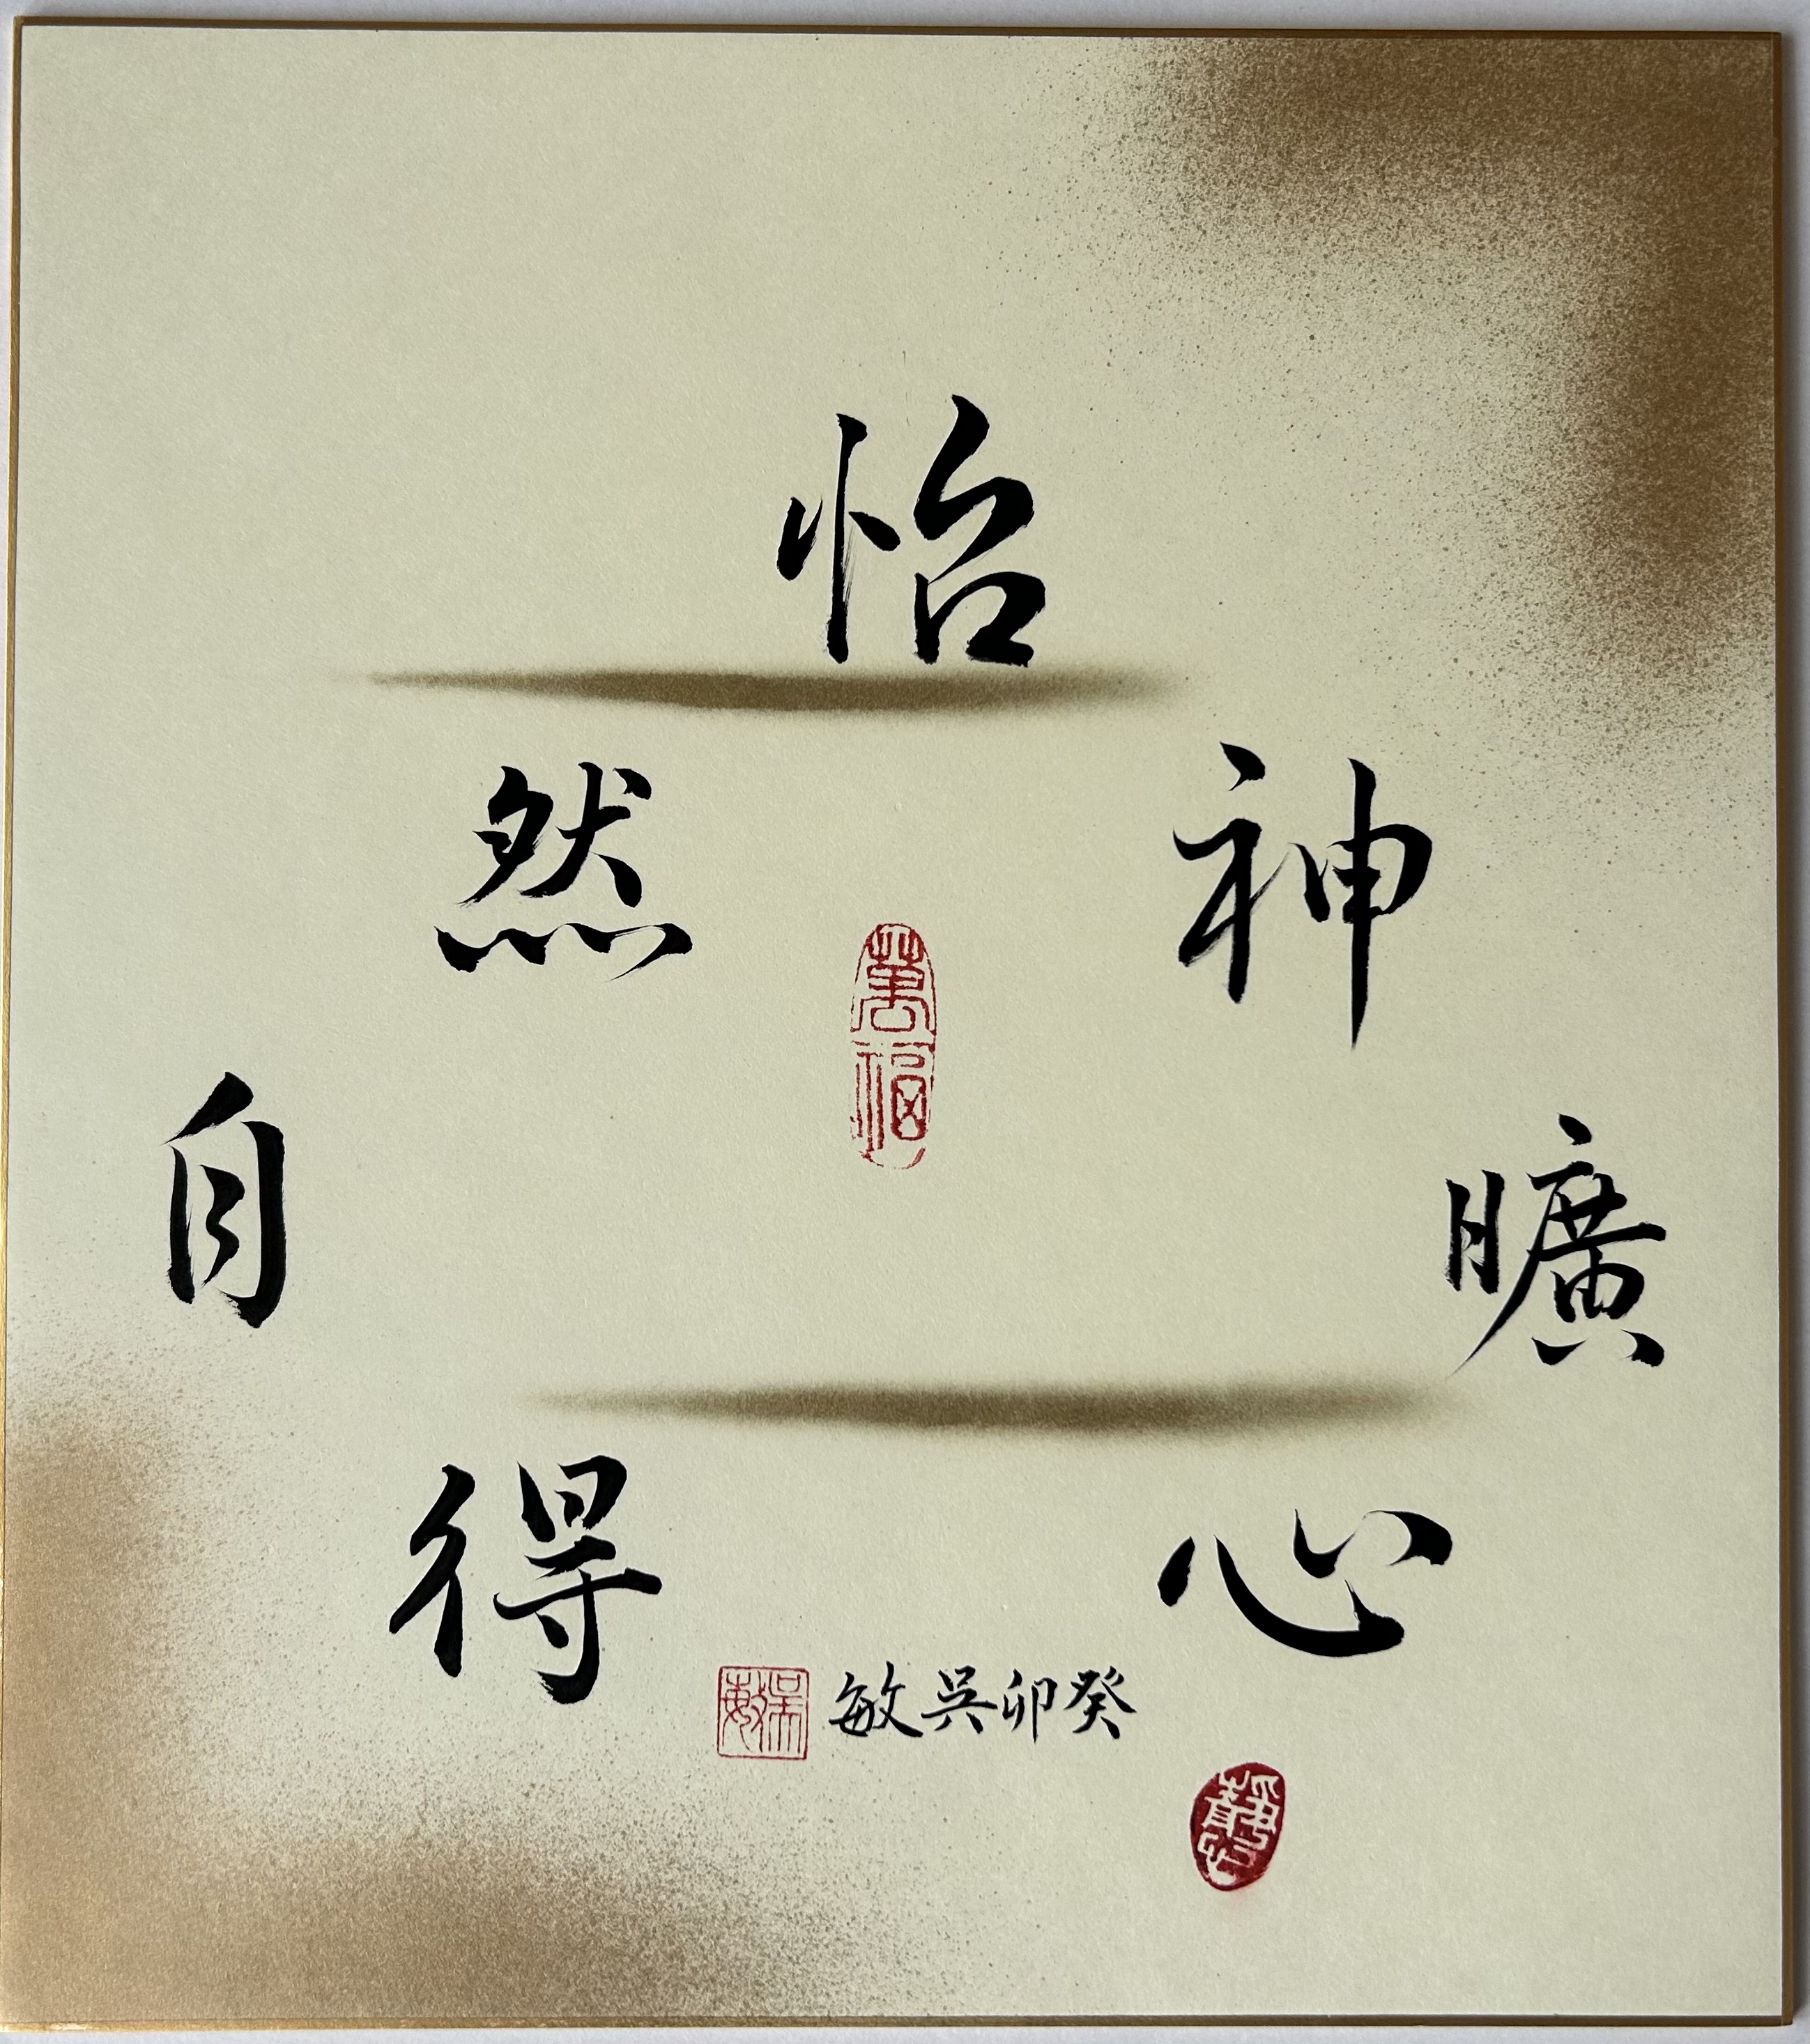 心曠神怡然自得
萬福
癸卯吳敏
吳敏
靜心